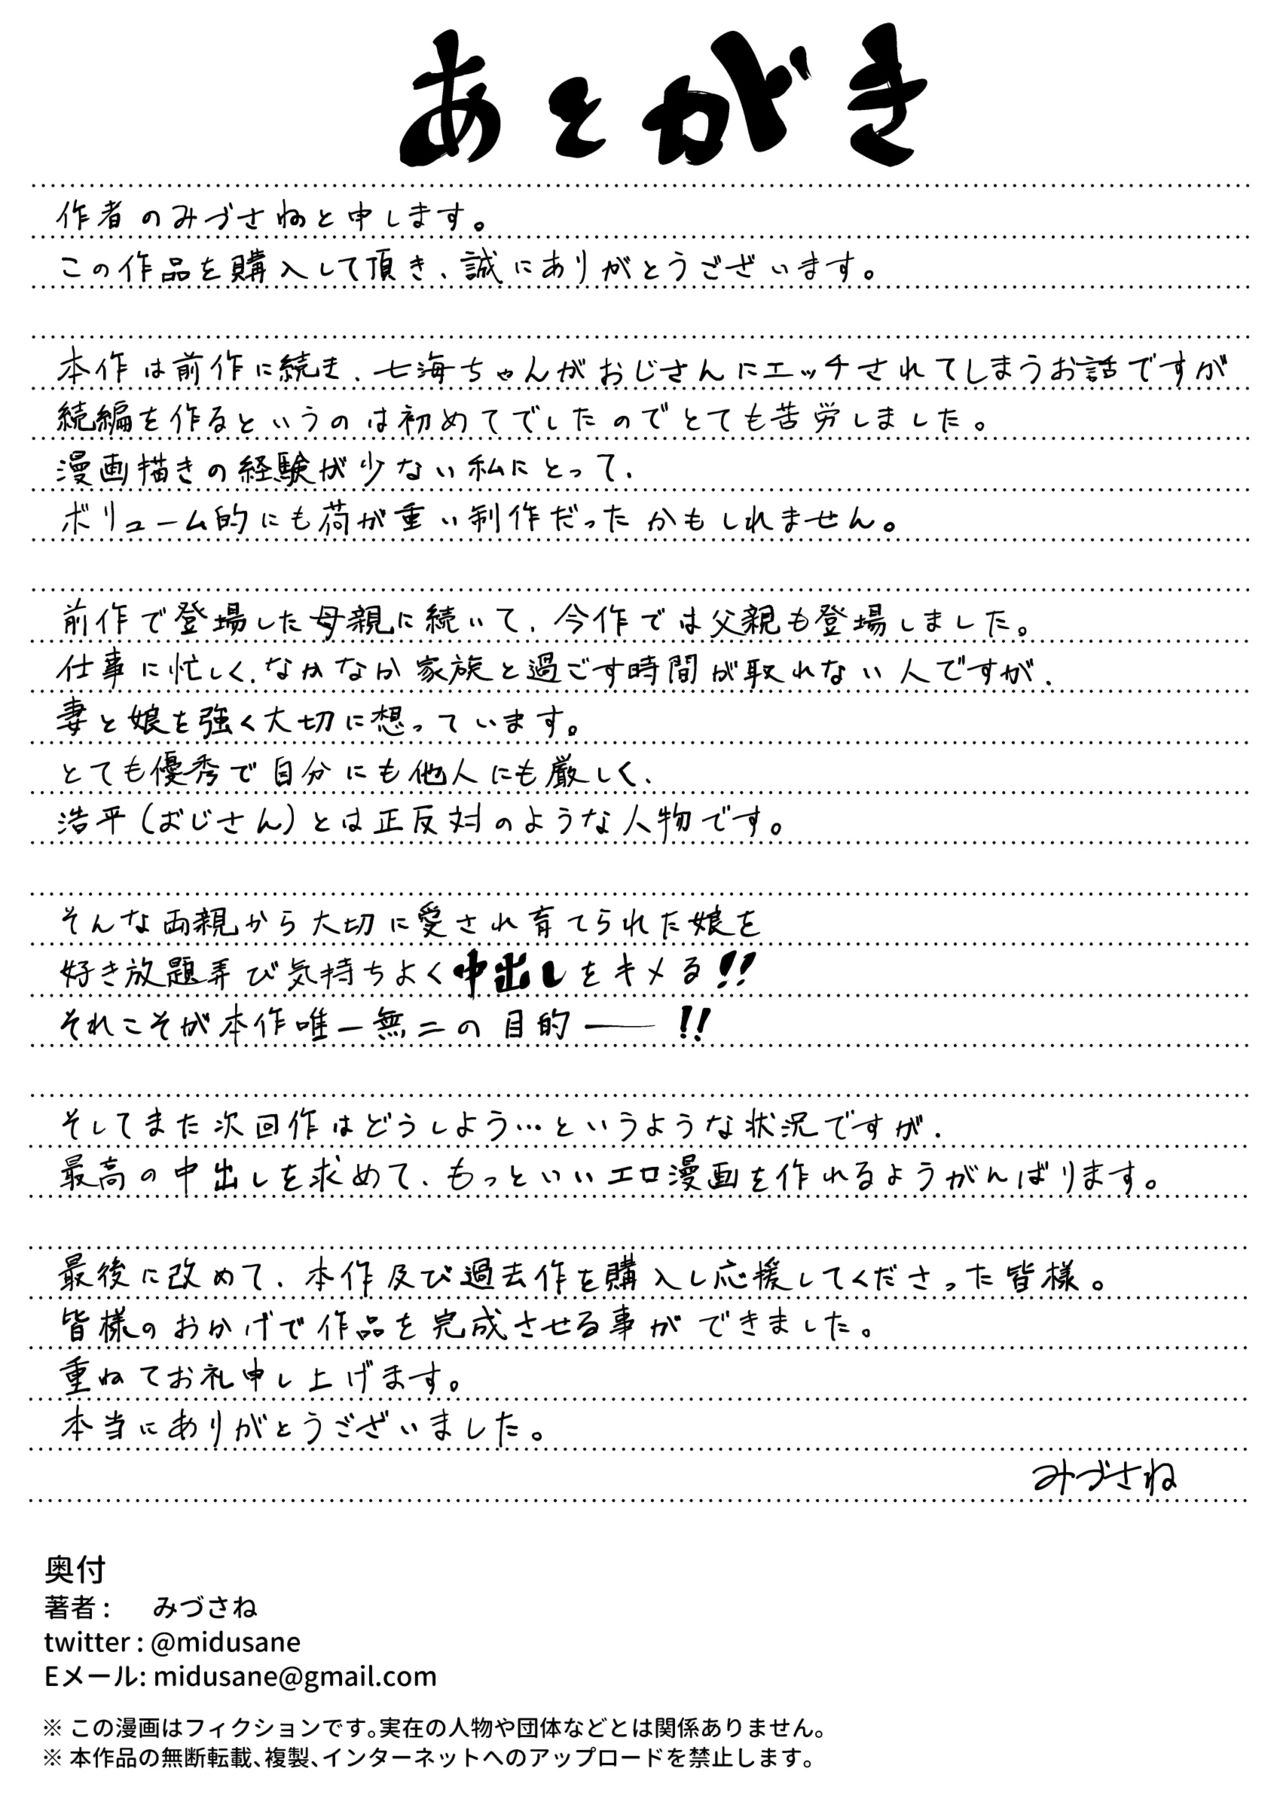 あとがき
作者のみづさねと申します。
この作品を購入して頂き、誠にありがとうございます。
本作は前作に続き、七海ちゃんがおじさんにエッチされてしまうお話ですが
続編を作るというのは初めてでしたのでとても苦労しました。
漫画描きの経験が少ない私にとって、
ボリューム的にも荷が重い制作だったかもしれません。
前作で登場した母親に続いて、今作では父親も登場しました。
仕事に忙しく、なかなか家族と過ごす時間が取れない人ですが、
妻と娘を強く大切に想っています。
とても優秀で自分にも他人にも厳しく、
浩平(おじさん)とは正反対のような人物です。
そんな両親から大切に愛され育てられた娘を
好き放題弄び気持ちよく中出しをキメる!!
それこそが本作唯一無二の目的――!!
そしてまた次回作はどうしよう…というような状況ですが、
最高の中出しを求めて、もっといいエロ漫画を作れるようがんばります。
最後に改めて、本作及び過去作を購入し応援してくださった皆様。
皆様のおかげで作品を完成させる事ができました。
重ねてお礼申し上げます。
本当にありがとうございました。
みづさね
奥付
著者： みづさね
twitter : @midusane
Eメール: midusane@gmail.com
※ この漫画はフィクションです。実在の人物や団体などとは関係ありません。
※ 本作品の無断転載、複製、インターネットへのアップロードを禁止します。